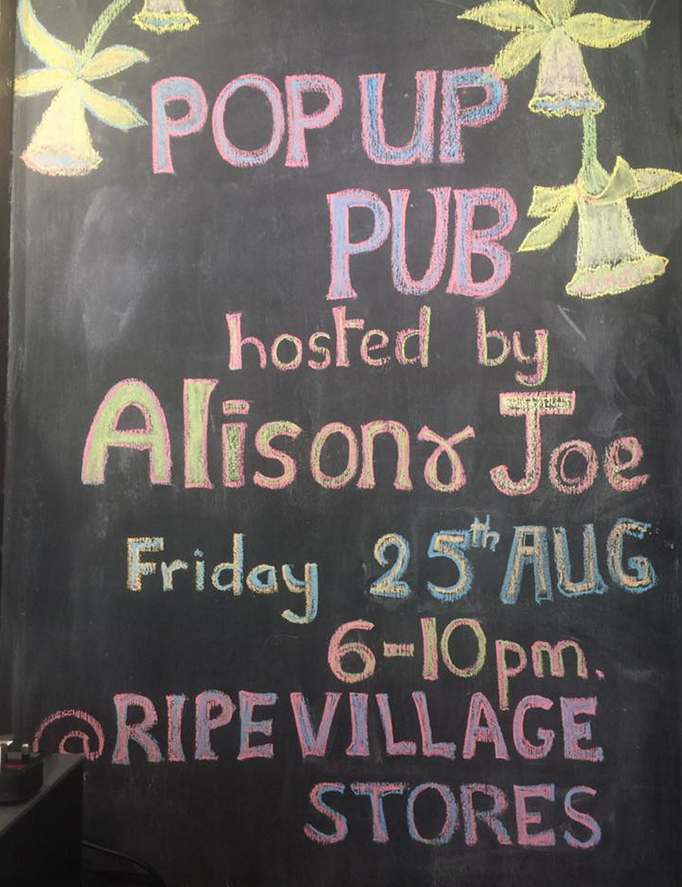 POP UP
PUB
hosted by
Alison & Joe
Friday 25th AUG
6-10pm.
@RIPE VILLAGE
STORES